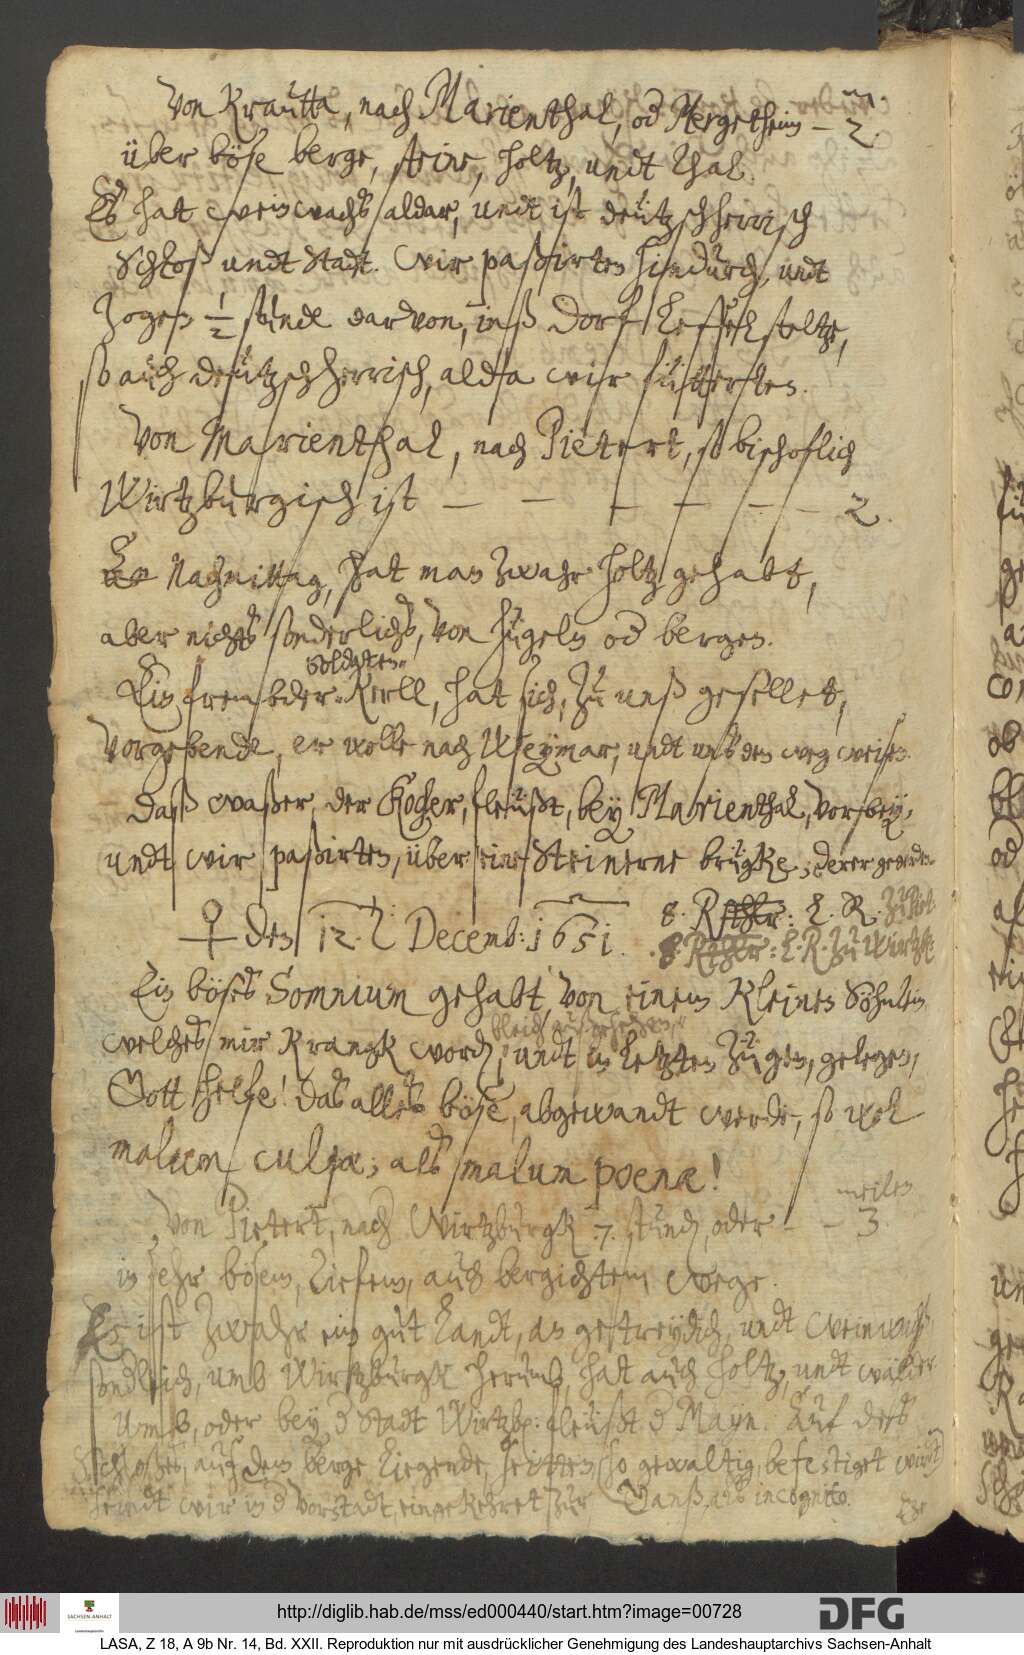 m.
Von Krautta, nach Marienthal, od Mergetheim – 2.
über böse berge, steine, holtz, undt thal.
Es hatt weinwachs aldar, undt ist deützschherrisch
Schloß undt Stadt. Wir paßirten hindurch, undt
Zogen ½ stunde darvon, inß Dorf Leffelsteltze,
so auch deützschherrisch, alda wir fütterten.
Von Marienthal, nach Pietert, so bischoflich
Wirtzburgisch ist – – – – – – 2.
Nachmittag, hat man zwahr holtz gehabt,
aber nichts sonderlichs, von hügeln od bergen.
Soldaten
Ein frembder Kerll, hat sich, zu unß gesellet,
Vorgebende, er wolle nach Weymar, undt unß den weg weisen.
Daß waßer, der Kocher, fleüßt, bey Marienthal, vorbey,
undt wir paßirten, über eine Steinerne brügke,
♀ den 12. Decemb: 1651.
8. Rthlr: L. R. zu Piet
8. Rthlr: L. R. zu Wirtzb:
Ein böses Somnium gehabt, von einem Kleinen Söhnlein
bleich außgesehen
welches mir Krangk word, undt in letzten Zügen, gelegen,
Gott helfe! das alles böse, abgewandt werde, so wol
malum culpæ; als malum poenæ!
meilen
Von Pietert, nach Wirtzburgk 7. stund, oder – – 3.
in sehr bösem, tiefem, auch bergichtem wege.
Es ist zwahr ein gut Landt, an getreydich, undt weinwachß
sondlich, umb Wirtzburgk herumb, hat auch holtz, undt wälder
Umb, oder bey d Stadt Wirtzb: fleüßt d Mayn. Auf des
Schloßes, auf dem berge liegende, seitten, so gewaltig, befestiget wirdt
seindt wir in d Vorstadt, eingekehret, zur Ganß, als incognito.
http://diglib.hab.de/mss/ed000440/start.htm?image=00728
SACHSEN-ANHALT
DFG
LASA, Z 18, A 9b Nr. 14, Bd. XXII. Reproduktion nur mit ausdrücklicher Genehmigung des Landeshauptarchivs Sachsen-Anhalt